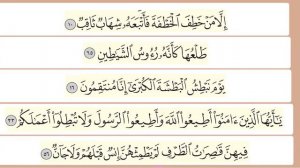 إِلَّا مَنْ خَطِفَ الْخَطْفَةَ فَأَتْبَعَهُ شِهَابٌ ثَاقِبٌ ١٠
طَلْعُهَا كَأَنَّهُ رُءُوسُ الشَّيَاطِينِ ٦٥
يَوْمَ نَبْطِشُ الْبَطْشَةَ الْكُبْرَىٰ إِنَّا مُنتَقِمُونَ ١٦
يَا أَيُّهَا الَّذِينَ ءَامَنُوا أَطِيعُوا اللَّهَ وَأَطِيعُوا الرَّسُولَ وَلَا تُبْطِلُوا أَعْمَالَكُمْ ٣٣
فِيهِنَّ قَاصِرَاتُ الطَّرْفِ لَمْ يَطْمِثْهُنَّ إِنسٌ قَبْلَهُمْ وَلَا جَانٌّ ٥٦